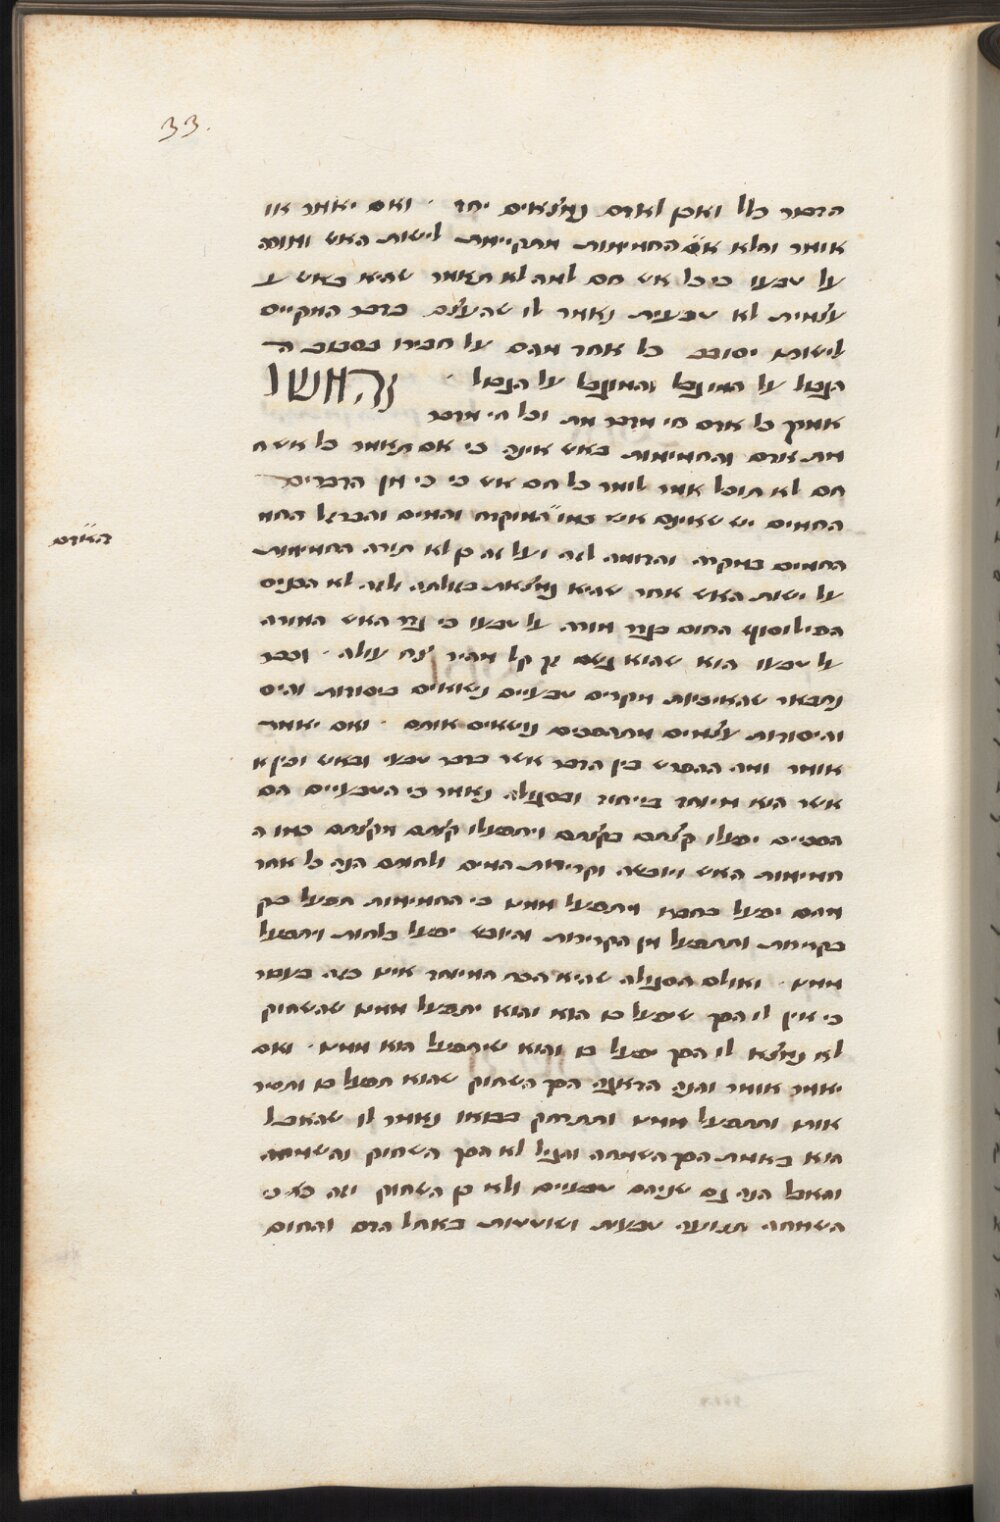 33.
הדבור כלל ואכן לאדם נמצאים יחד . ואם יאמר או
אומר והלא אם החמימות מתקיימת לישות האש ומורה
על טבעו כי כל אש חם למה לא תאמר שהיא באש ע
עצמית לא טבעית נאמר לו שהעצם כדבר המקיים
לישות יסובב כל אחד מהם על חבירו בסבוב ה
הנבדל על המוגבל והמוגבל על הנבדל . והמשל
אמרך כל אדם חי מדבר מת וכל חי מדבר
מת אדם והחמימות באש אינה כי אם תאמר כל אש ח
חם לא תוכל אמר לומר כל חם אש כי כי מן הדברים
החמים יש שאינם אש כמו המוקדח והמים והברזל החמ
האדם
החמים במקרה והדומה לזה ועל זה כן לא תורה החמימות
על ישות האש אחר שהיא נמצאת בזולתה ולזה לא הכניס
הפילוסוף החום בגדר מורה על טבעו כי גדר האש המורה
על טבעו הוא שהוא גשם זך קל מהיר ינח עולה . וכבר
נתבאר שהאיכיות מקרים טבעיים נשואים ביסודות והיס
והיסודות עצמיים מתהפכים נושאים אותם . ואם יאמר
אומר ומה ההפרש בין הדבר אשר כדבר טבעי ובאש ובין א
אשר הוא מיוחד בייחוד ובסגולה נאמר כי הטבעיים הם
הפכיים יפעלו קצתם בקצתם ויתפעלו קצתם מקצתם כמו ה
חמימות האש ויובשה וקרירות המים ולחותם הנה כל אחד
מהם יפעל בחברו ויתפעל ממנו כי החמימות תפעל בק
בקרירות ותתפעל מן הקרירות והיובש יפעל בלחות ויתפעל
ממנו . ואולם הסגולה שהיא הכח המיוחד אינו כזה בעבור
כי אין לו הפך שיפעל בו הוא והוא יתפעל ממנו שהשחוק
לא נמצא לו הפך יפעל בו והוא שיתפעל הוא ממנו . ואם
יאמר אומר והנה הדאגה הפך השחוק שהוא תפעל בו ותסיר
אותו ותתפעל ממנו ותתרחק בבואו נאמר לו שהאבל
הוא באמת הפך השמחה והגיל לא הפך השחוק והשמחה
והאבל הנה גם שניהם טבעיים ולא כן השחוק וזה כי
השמחה תנועה טבעית ושוטטות באחל הדם והחום